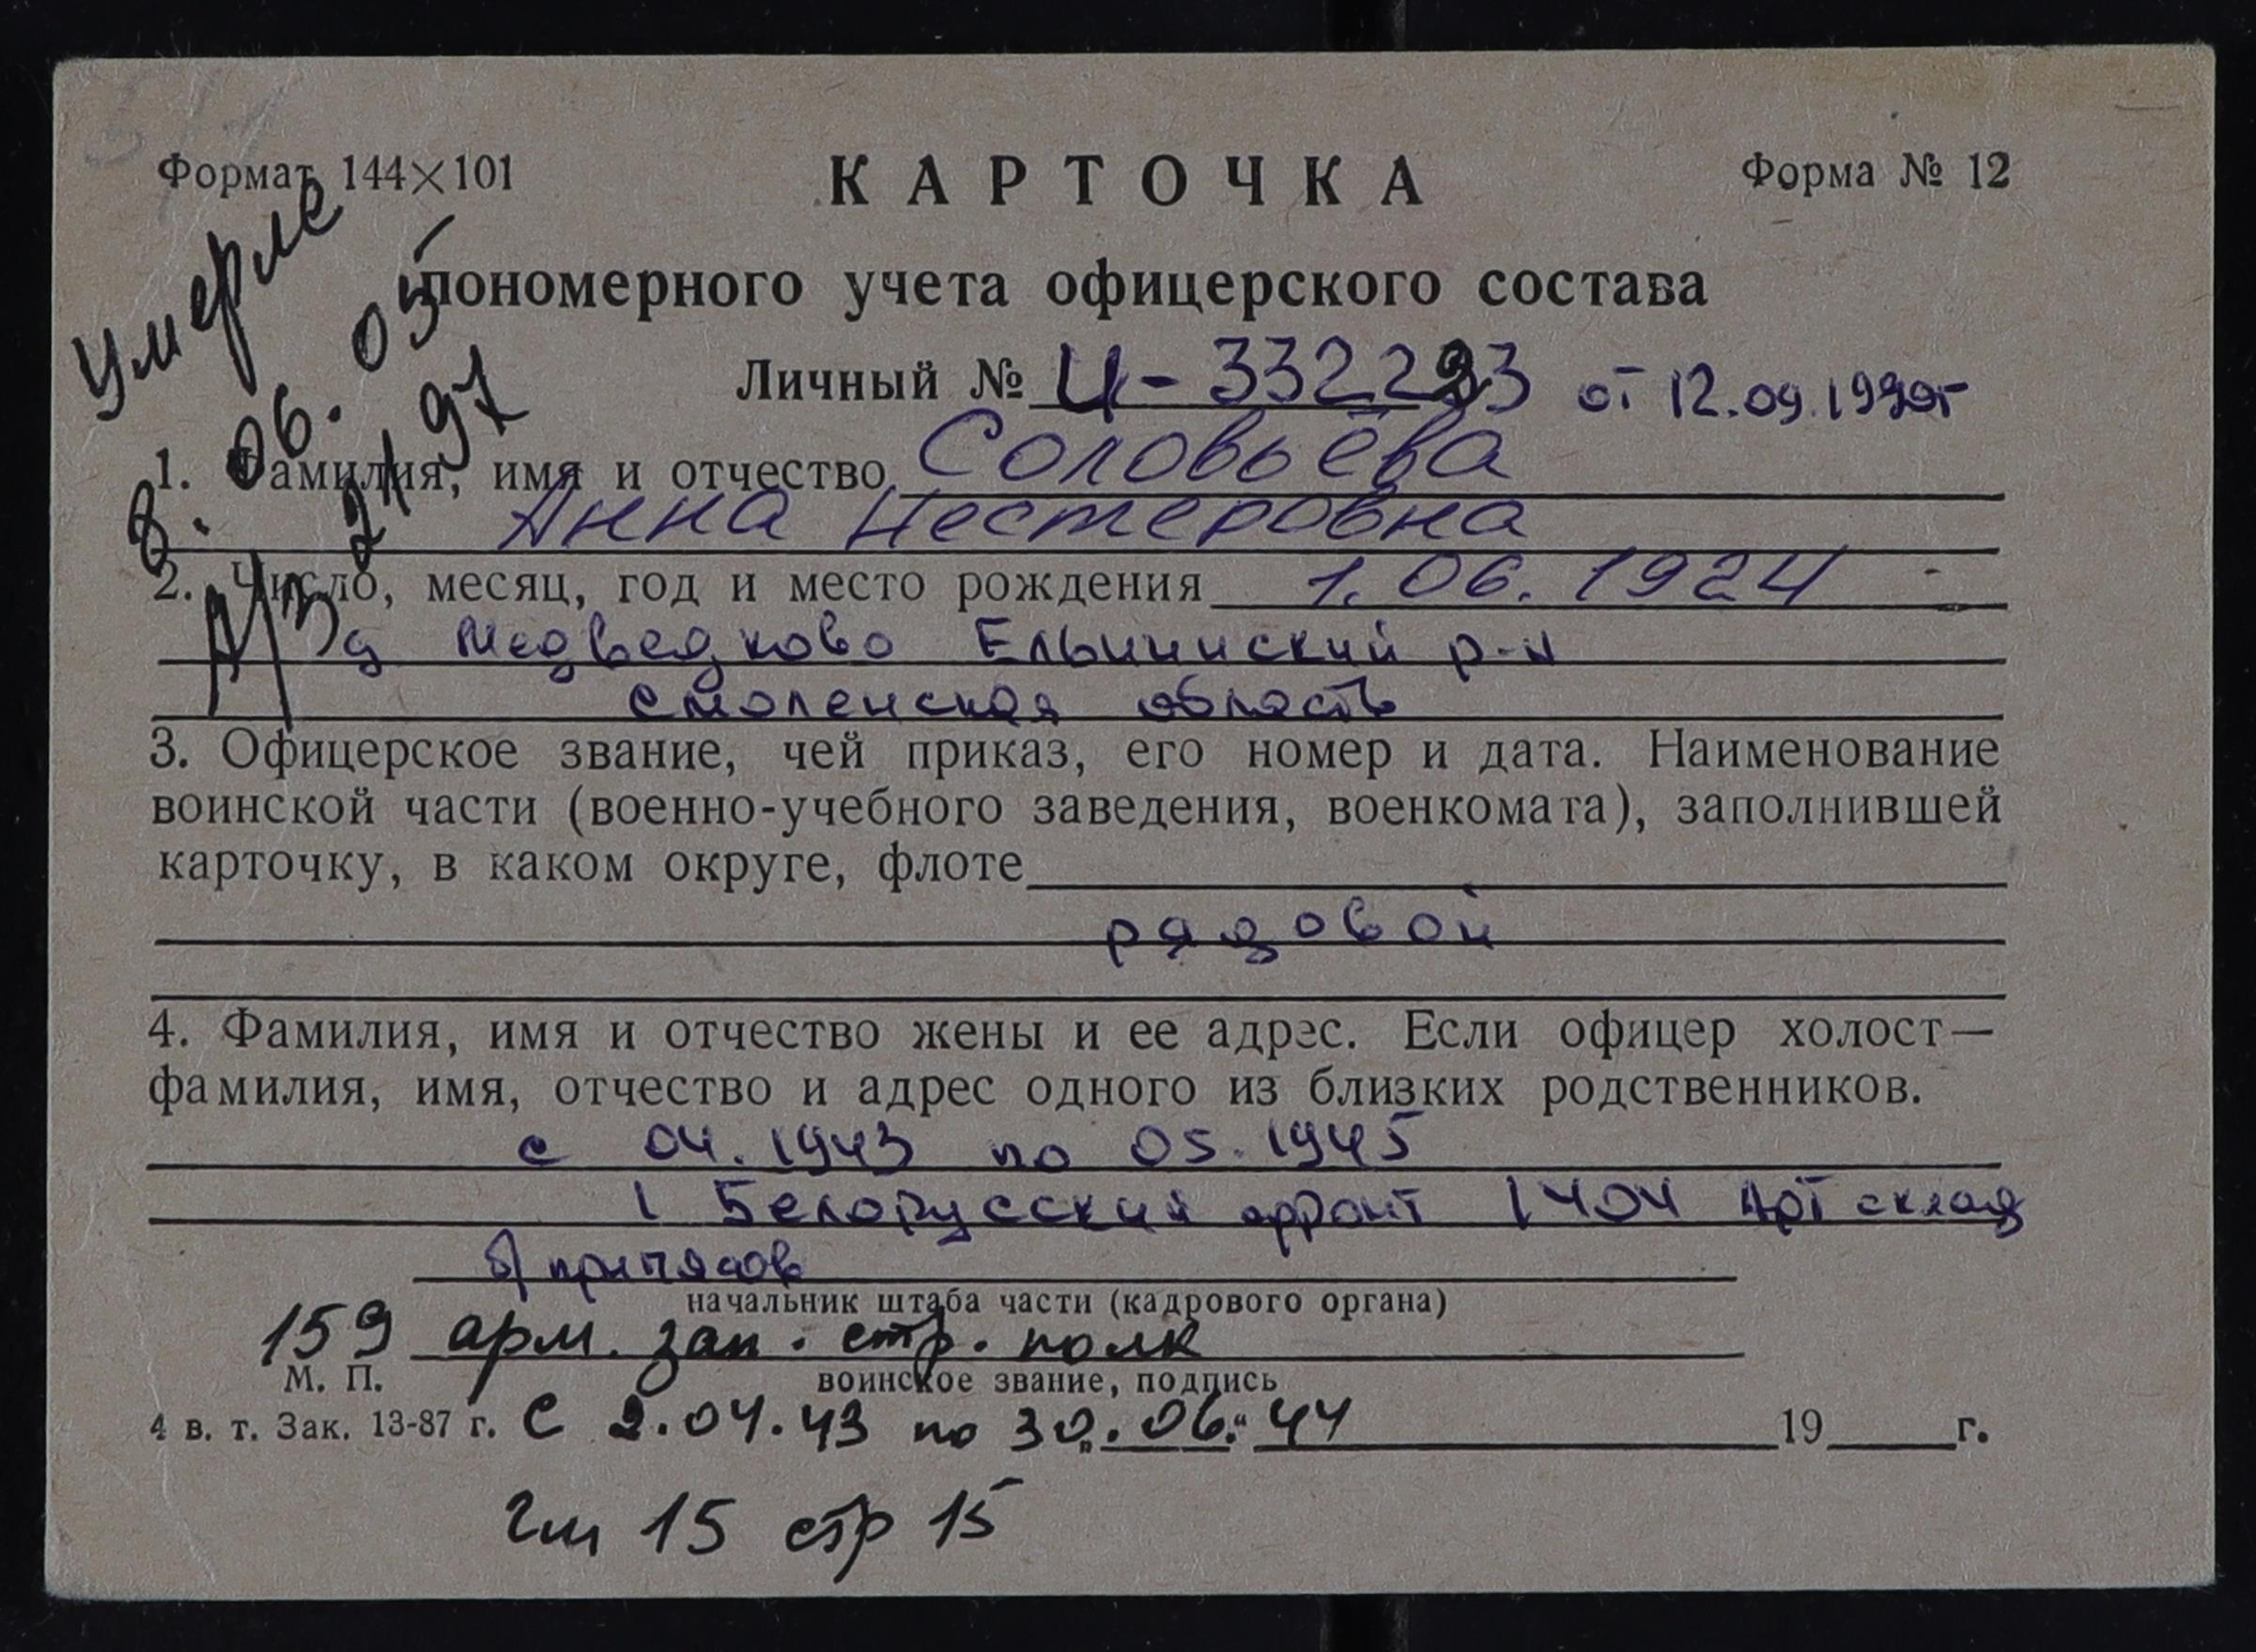 Формат 144×101
КАРТОЧКА
Форма № 12
Умерла
8. 06. 05
поономерного учета офицерского состава
Личный № И-332233 от 12.09.1990г
1. Фамилия, имя и отчество Соловьёва
Анна Нестеровна
2. Число, месяц, год и место рождения 1.06.1924
д Медведково Ельнинский р-н
Смоленская область
3. Офицерское звание, чей приказ, его номер и дата. Наименование
воинской части (военно-учебного заведения, военкомата), заполнившей
карточку, в каком округе, флоте
рядовой
4. Фамилия, имя и отчество жены и ее адрес. Если офицер холост—
фамилия, имя, отчество и адрес одного из близких родственников.
с 04.1943 по 05.1945
1 Белорусский фронт 1404 Арт склад
б/припасов
начальник штаба части (кадрового органа)
159 арм. зап. стр. полк
М. П.
воинское звание, подпись
4 в. т. Зак. 13-87 г. С 2.04.43 по 30.06.44 19 г.
Гл 15 стр 15